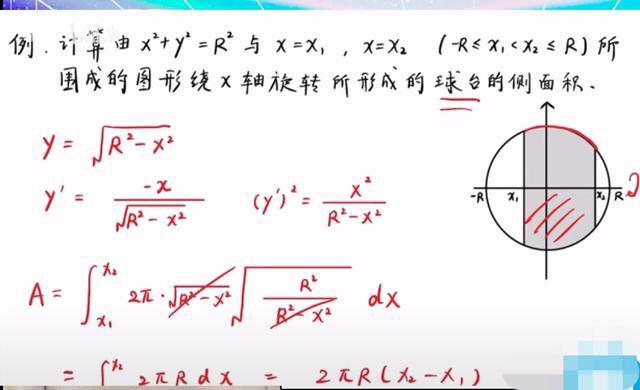 例. 计算由 x²+y²=R² 与 x=x₁, x=x₂ (-R≤x₁<x₂≤R)所
围成的图形绕 x 轴旋转所形成的球台的侧面积.
y = √(R²-x²)
y' = -x/√(R²-x²) (y')² = x²/(R²-x²)
-R x₁ x₂ R
A = ∫_{x₁}^{x₂} 2π·√(R²-x²) √(R²/(R²-x²)) dx
= ∫_{x₁}^{x₂} 2πR dx = 2πR(x₂-x₁)